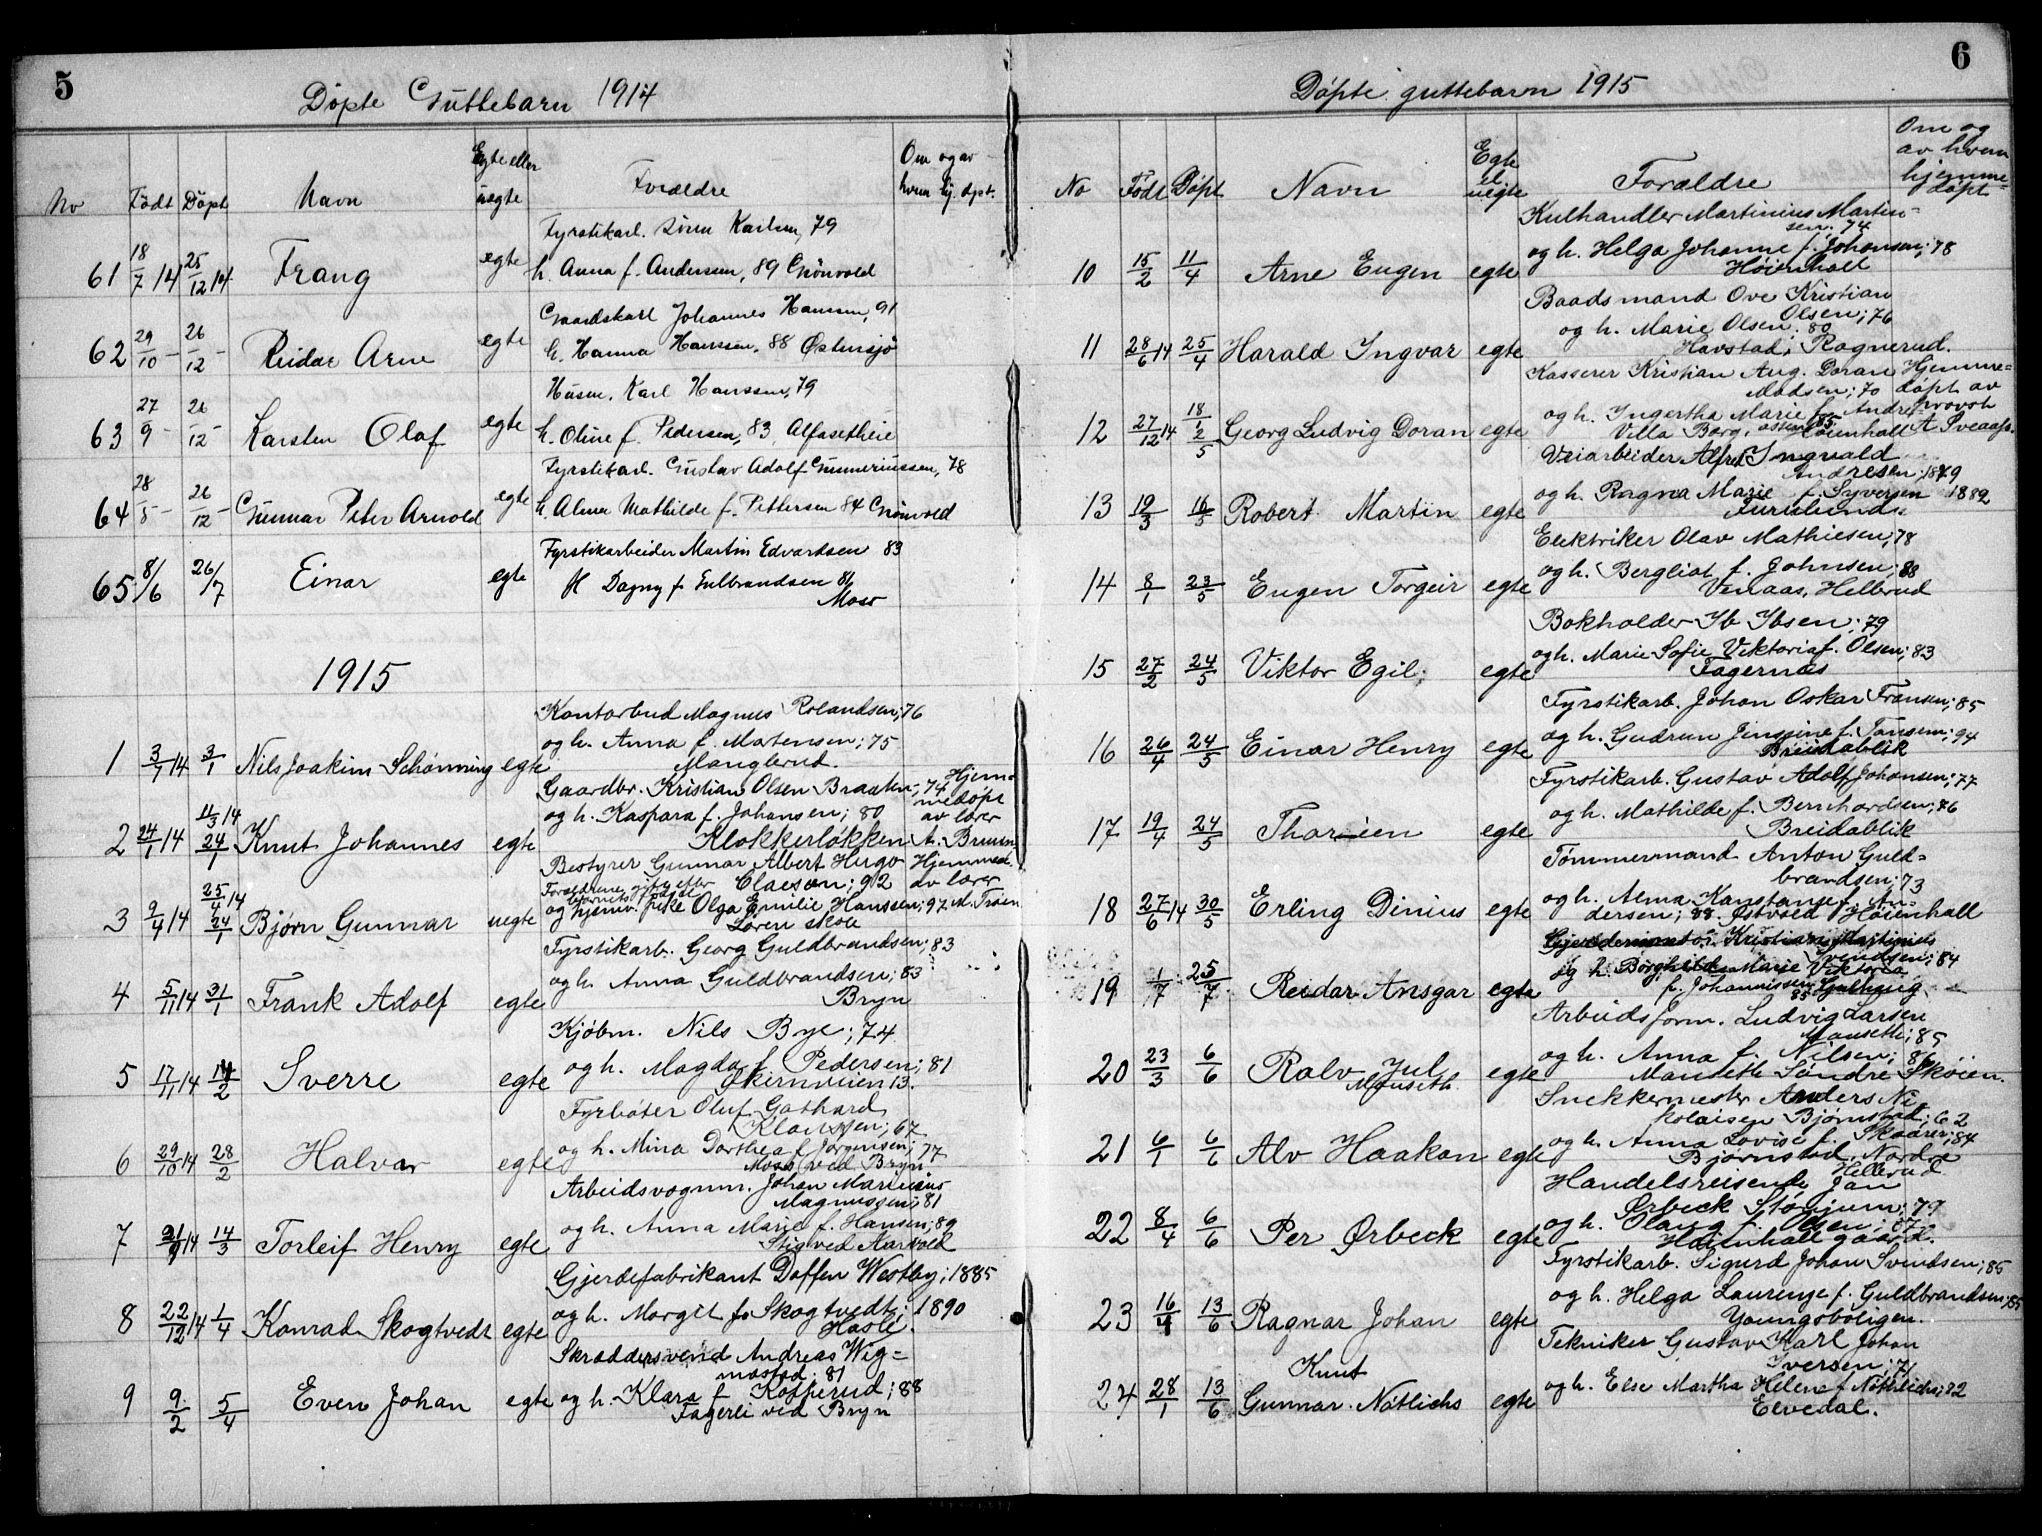 5
Døpte Guttebarn 1914
No Født Døpt Navn Egte eller uegte Forældre Om og av hvem hj. døpt.
Fyrstikarb. Sören Karlsen, 79
61 18/7 14 25/12 14 Frang egte
h. Anna f. Andersen, 89 Grönvold
Gaardskarl Johannes Hanssen, 91
62 29/10 - 26/12 - Reidar Arne egte
h. Hanna Hanssen. 88 Østensjø
Husm. Karl Hanssen, 79
63 27/9 - 26/12 - Karsten Olaf egte
h. Oline f. Pedersen, 83, Alfasetheie
Fyrstikarb. Gustav Adolf Gunneriussen, 78
64 28/8 - 26/12 - Gunnar Peter Arnold egte
h. Alma Mathilde f. Pettersen 84 Grönvold
Fyrstikarbeider Martin Edvardsen 83
65 8/6 26/7 Einar egte
H Dagny f Gulbrandsen 86
Moss
1915
Kontorbud Magnus Rolandsen; 76
og h. Anna f. Mortensen; 75
1 3/1 14 3/1 Nils Joakim Schønning egte
Manglerud.
Gaardbr. Kristian Olsen Braaten; 74
og h. Kaspara f. Johansen; 80
Hjem-
medøpt
av lærer
A. Bruun
2 24/1 14 11/3 14 24/1 Knut Johannes egte
Klokkerløkken
Bestyrer Gunnar Albert Hugo
Claeson; 92
Forældrene gift efter
barnets fødsel
Hjemmed.
av lærer
M. Troen
3 9/4 14 25/4 14 24/1 Bjørn Gunnar uegte
og hjemv. pike Olga Emilie Hanssen; 97
Løren skole
Fyrstikarb. Georg Guldbrandsen; 83
og h. Anna Guldbrandsen; 83
4 5/11 14 31/1 Frank Adolf egte
Bryn
Kjøbm. Nils Bye; 74
og h. Magda f. Pedersen; 81
5 17/11 14 14/2 Sverre egte
Skiernveien 13.
Fyrbøter Oluf Gothard
Klausen; 67
og h. Mina Dorthea f. Jørgensen; 77
6 29/10 14 28/2 Halvar egte
Moss ved Bryn
Arbeidsvognm. Johan Marinius
Magnussen; 81
og h. Anna Marie f. Hansen; 89
7 14 14/3 Torleif Henry egte
Stig ved Aarvold
Gjerdefabrikant Doffen Westby; 1885
og h. Margit f. Skogtvedt; 1890
8 22/12 14 1/4 Konrad Skogtvedt egte
Hasle.
Skræddersvend Andreas Wig-
mostad; 81
9 9/2 5/4 Even Johan egte
og h. Klara f. Kopperud; 88
Fagerli ved Bryn
6
Døpte guttebarn 1915
No Født Døpt Navn Egte el uegte Forældre Om og av hvem hjemme-døpt
Kulhandler Martinius Martin-
sen. 74
og h. Helga Johanne f. Johansen; 78
10 15/2 11/4 Arne Eugen egte
Høienhall
Baadsmand Ove Kristian
Olsen; 76
og h. Marie Olsen; 80
11 28/6 14 25/4 Harald Ingvar egte
Havstad, Rognerud.
Kasserer Kristian Aug. Doran
Madsen; 70
og h. Ingertha Marie f. Andre-
assen 85
Hjemme-
døpt av
provst
A Sveaas.
12 27/12 14 18/1 2/5 Georg Ludvig Doran egte
Villa Borg, Høienhall
Veiarbeider Alfred Ingvald
Andresen; 1879
og h. Ragna Marie f. Syversen 1882
13 19/3 16/5 Robert Martin egte
Furulund
Elektriker Olav Mathiesen; 78
og h. Bergliot f. Johnsen; 88
14 8/1 23/5 Eugen Torgeir egte
Venaas, Hellerud
Bokholder Ib Ibsen; 79
og h. Marie Sofie Viktoria f. Olsen; 83
15 27/2 24/5 Viktor Egil egte
Fagernæs
Fyrstikarb. Johan Oskar Fransen; 85
og h. Gudrun Jinsine f. Tansem; 94
16 26/4 24/5 Einar Henry egte
Breidablik
Fyrstikarb. Gustav Adolf Johansen; 77
og h. Mathilde f. Bernhardsen; 76
17 19/4 24/5 egte
Breidablik
Tømmermand Anton Guld-
brandsen; 73
og h. Alma Konstanse f. An-
dersen; 88. Østvold Høienhall
18 27/6 14 30/5 Erling Dinius egte
Kristian Martinius
Svendsen; 84
og h. Borghild Marie Viktoria
f. Johannissen 85
19 1/7 25/7 Reidar Ansgar egte
Arbeidsform. Ludvig Larsen
Mauseth; 85
og h. Anna f. Nilsen; 86
20 23/3 6/6 Ralv Jul Mauseth egte
Mauseth Søndre Skøien.
Snekkermester Anders Ni-
kolaisen Bjørnstad; 62
og h. Anna Lovise f. Skaarer; 84
21 6/1 6/6 Alv Haakon egte
Bjørnstad. Nordre
Hellerud
Handelsreisende Jan
Ørbeck Stönjum; 79
og h. Olaug f. Olsen; 87
22 8/4 6/6 Per Ørbeck egte
Høienhall gaard.
Fyrstikarb. Sigurd Johan Svendsen; 85
og h. Helga Laurense f. Guldbrandsen; 85
23 16/4 13/6 Ragnar Johan egte
Youngsboligen.
Tekniker Gustav Karl Johan
Iversen; 71
24 28/1 13/6 Knut Gunnar Nötlichs egte
og h. Else Martha Helene f. Nötlichs; 82
Elvedal.